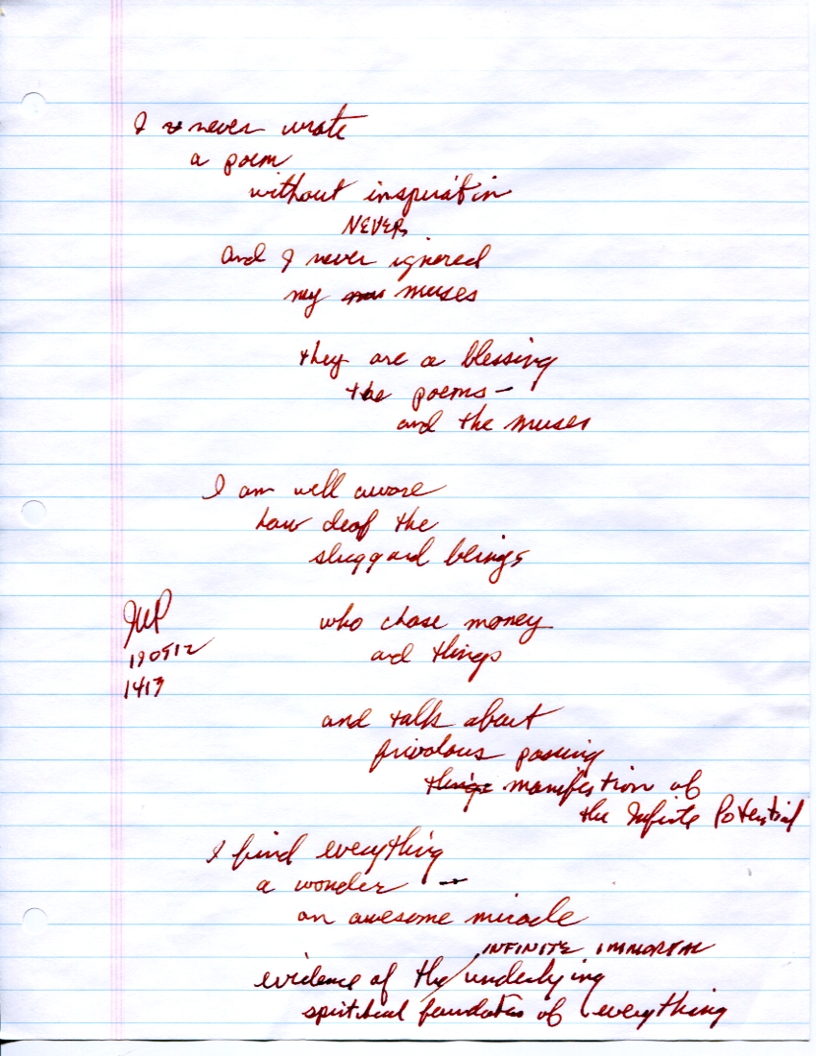 I never wrote
a poem
without inspiratin
NEVER
and I never ignored
my muses
they are a blessing
the poems —
and the muses
I am well aware
how deaf the
sluggard beings
who chose money
and things
JWP
190512
1417
and talk about
frivolous passing
things manifestion of
the Infinite Potential
I find everything
a wonder —
an awesome miracle
INFINITE IMMORTAL
evidence of the / underlying
spiritual foundation of everything